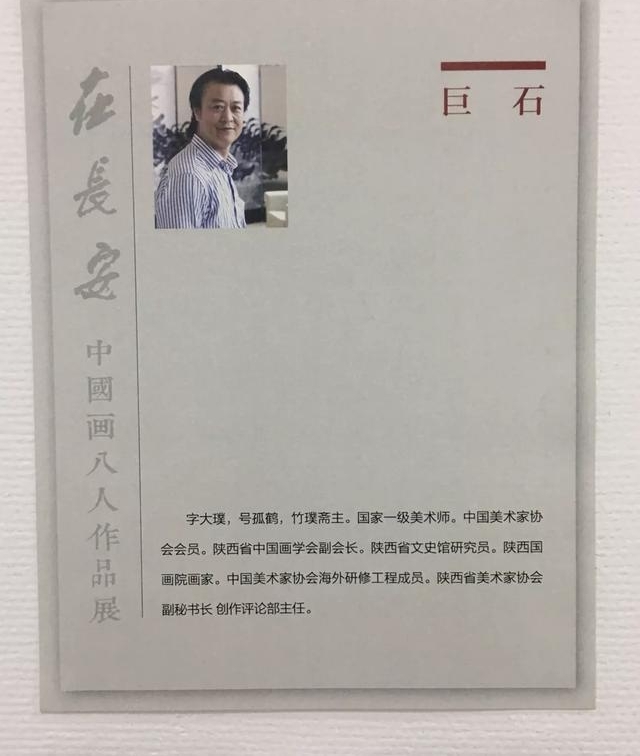 在長安
中國画八人作品展
巨石
字大璞，号孤鹤，竹璞斋主。国家一级美术师。中国美术家协
会会员。陕西省中国画学会副会长。陕西省文史馆研究员。陕西国
画院画家。中国美术家协会海外研修工程成员。陕西省美术家协会
副秘书长 创作评论部主任。